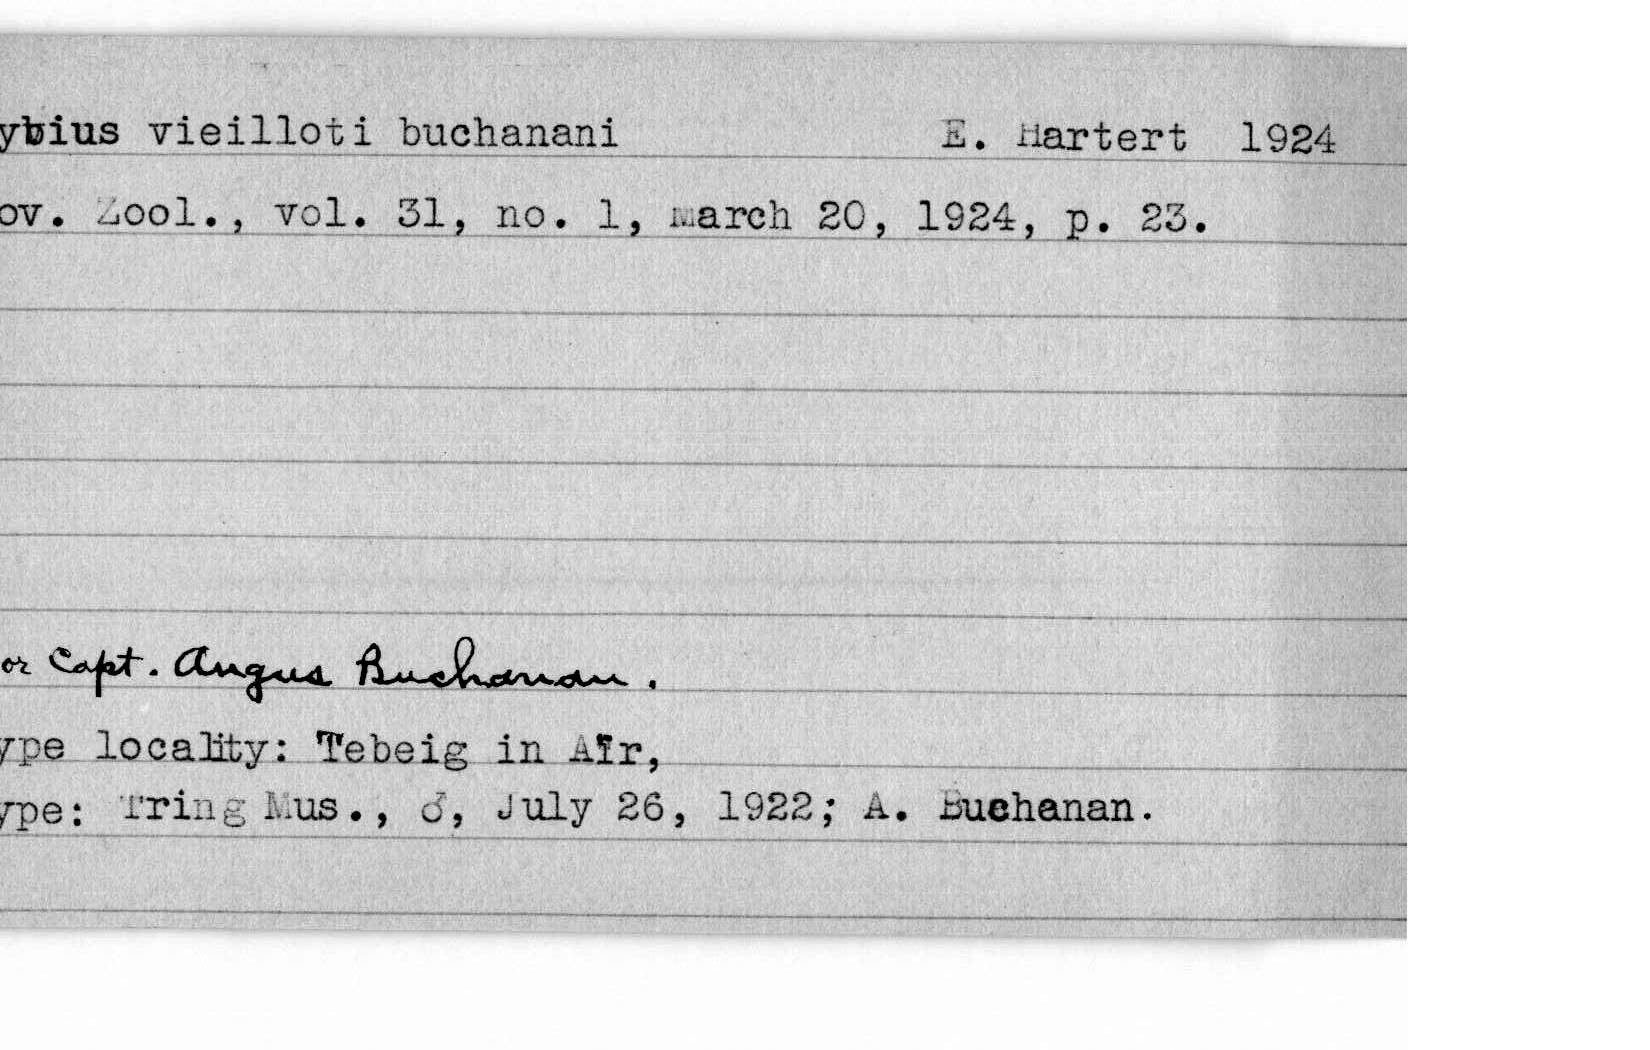 ybius vieilloti buchanani E. Hartert 1924
ov. Zool., vol. 31, no. 1, March 20, 1924, p. 23.
or Capt. Angus Buchanan.
ype locality: Tebeig in Aïr,
ype: Tring Mus., ♂, July 26, 1922; A. Buchanan.